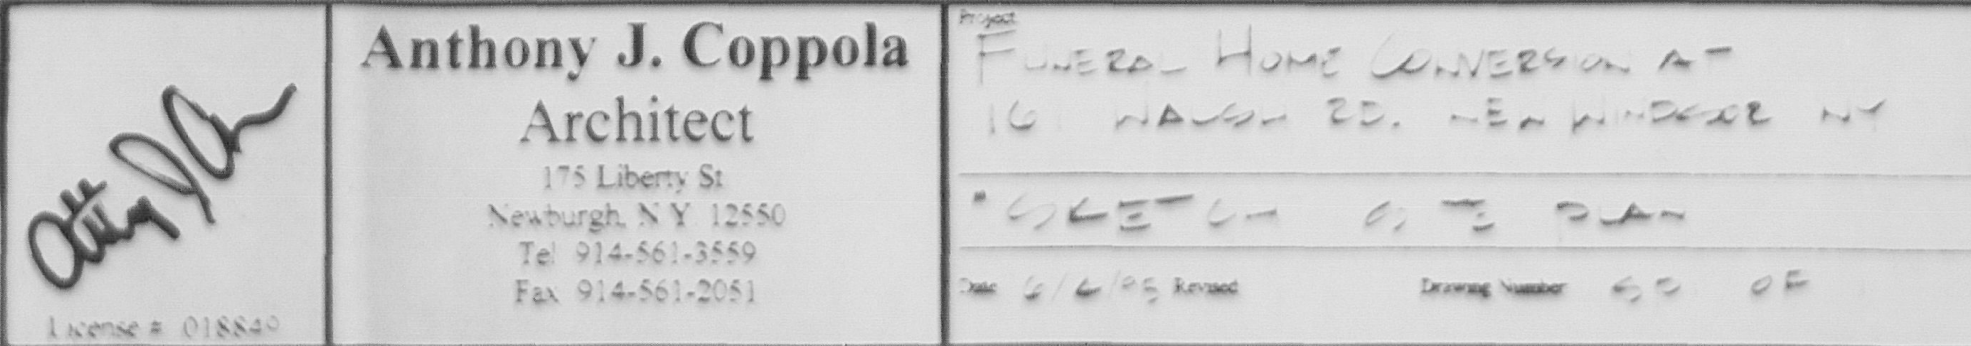 License # 018849
Anthony J. Coppola
Architect
175 Liberty St
Newburgh, N Y 12550
Tel 914-561-3559
Fax 914-561-2051
Project
FUNERAL HOME CONVERSION AT
161 WALSH RD. NEW WINDSOR NY
"SKETCH SITE PLAN
Date 6/6/95 Revised
Drawing Number OF